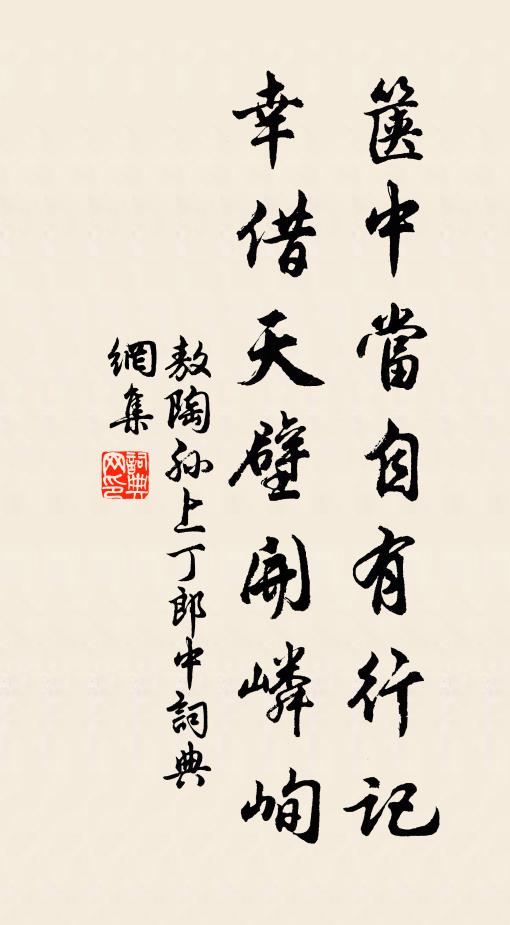 篋中當自有行記
幸借天壁開嶙峋
敖陶孫上丁郎中詞典
網集
詞典
网印